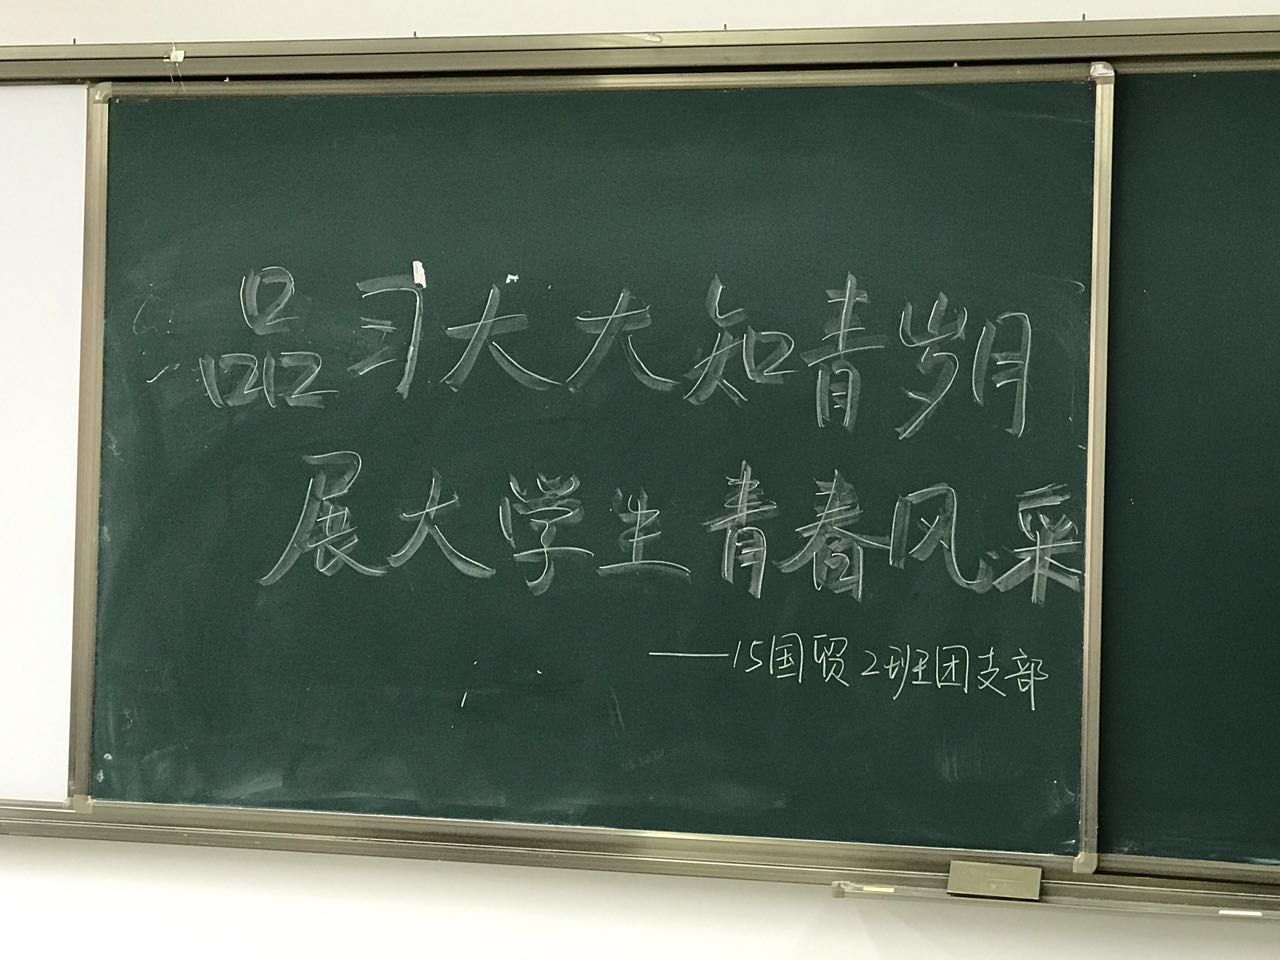 品习大大知青岁月
展大学生青春风采
——15国贸2班团支部